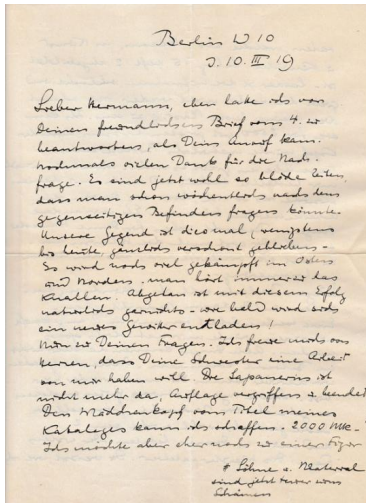 Berlin W 10
d. 10. III 19
Lieber Hermann, eben hatte ich vor
Deinen freundlichen Brief vom 4. zu
beantworten, als Dein Anruf kam.
Nochmals vielen Dank für die Nach-
frage. Es sind jetzt wohl so blöde Zeiten,
dass man schon wöchentlich nach dem
gegenseitigen Befinden fragen könnte.
Unsere Gegend ist diesmal, wenigstens
bis heute, gänzlich verschont geblieben.
Es wird noch viel gekämpft im Osten
und Norden. man hört immerzu das
Knallen. Abgetan ist mit diesem Erfolg
natürlich garnichts - wie bald wird sich
ein neues Gewitter entladen!
Nun zu Deinen Fragen. Ich freue mich von
Herzen, dass Deine Schwester eine Arbeit
von mir haben will. Die Japanerin ist
nicht mehr da, Auflage vergriffen u. beendet
Den Mädchenkopf vom Titel meines
Kataloges kann ich schaffen. - 2000 Mk. -
Ich möchte aber eher noch zu einer Figur
# Löhne u. Material
sind jetzt teuer zum
Schämen